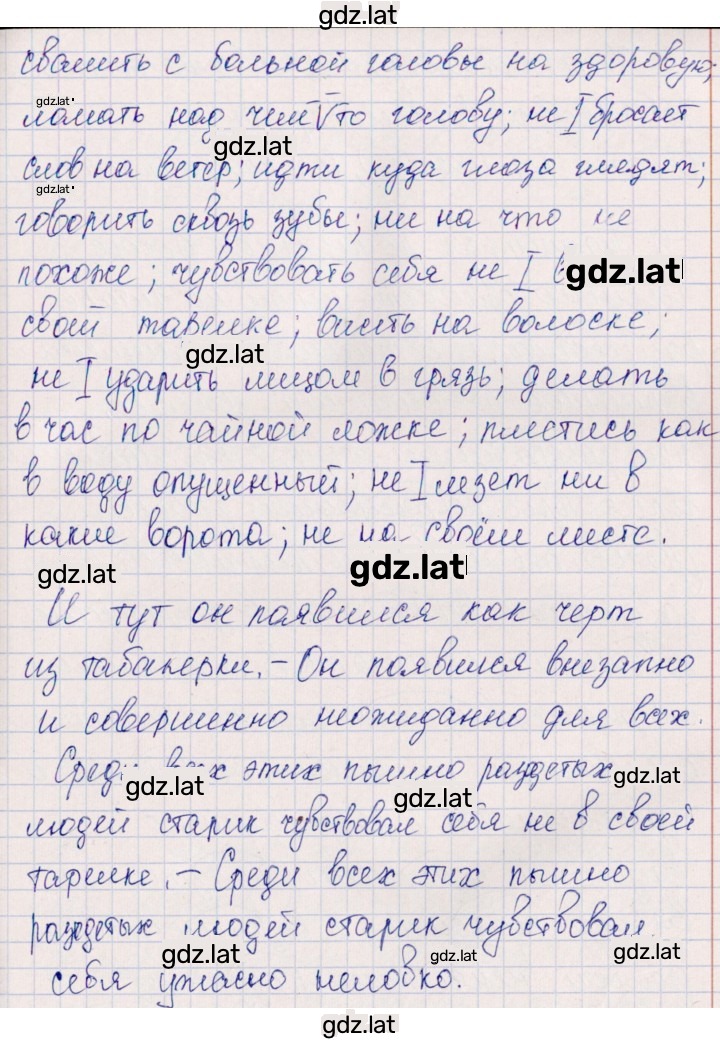 gdz.lat
свалить с больной головы на здоровую;
gdz.lat
ломать над чем-то голову; не | бросает
gdz.lat
слов на ветер; идти куда глаза глядят;
gdz.lat
говорить сквозь зубы; ни на что не
похоже; чувствовать себя не |
gdz.lat
своей тарелке; висеть на волоске;
gdz.lat
не | ударить лицом в грязь; делать
в час по чайной ложке; плестись как
в воду опущенный; не | лезет ни в
какие ворота; не на своём месте.
gdz.lat
gdz.lat
И тут он появился как черт
из табакерки. – Он появился внезапно
и совершенно неожиданно для всех.
Среди всех этих пышно разодетых
gdz.lat
gdz.lat
gdz.lat
людей старик чувствовал себя не в своей
тарелке. – Среди всех этих пышно
разодетых людей старик чувствовал
gdz.lat
gdz.lat
gdz.lat
себя ужасно неловко.
gdz.lat